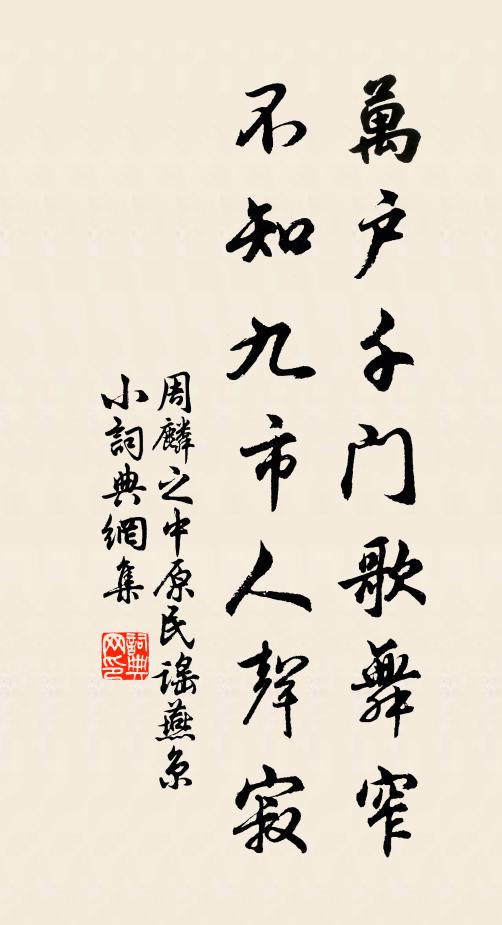 萬户千门歌舞窄
不知九市人聲寂
周麟之中原民謠燕京
小詞典網集
詞典网印